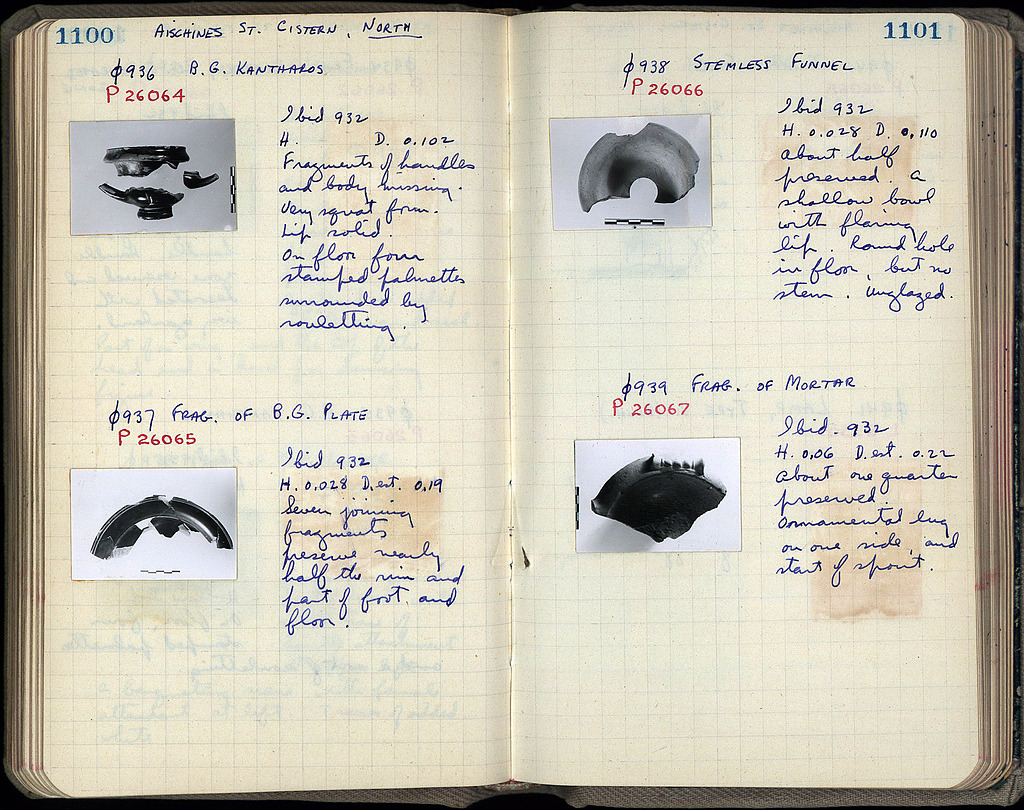 1100
AISCHINES ST. CISTERN, NORTH
φ936 B.G. KANTHAROS
P 26064
Ibid 932
H. D. 0.102
Fragments of handles
and body missing.
Very squat form.
Lip solid.
On floor four
stamped palmettes
surrounded by
rouletting.
φ937 FRAG. OF B.G. PLATE
P 26065
Ibid 932
H. 0.028 D. est. 0.19
Seven joining
fragments
preserve nearly
half the rim and
part of foot, and
floor.
1101
φ938 STEMLESS FUNNEL
P 26066
Ibid 932
H. 0.028 D. 0.110
About half
preserved. A
shallow bowl
with flaring
lip. Round hole
in floor, but no
stem. Unglazed.
φ939 FRAG. OF MORTAR
P 26067
Ibid. 932
H. 0.06 D. est. 0.22
About one quarter
preserved.
Ornamental lug
on one side, and
start of spout.